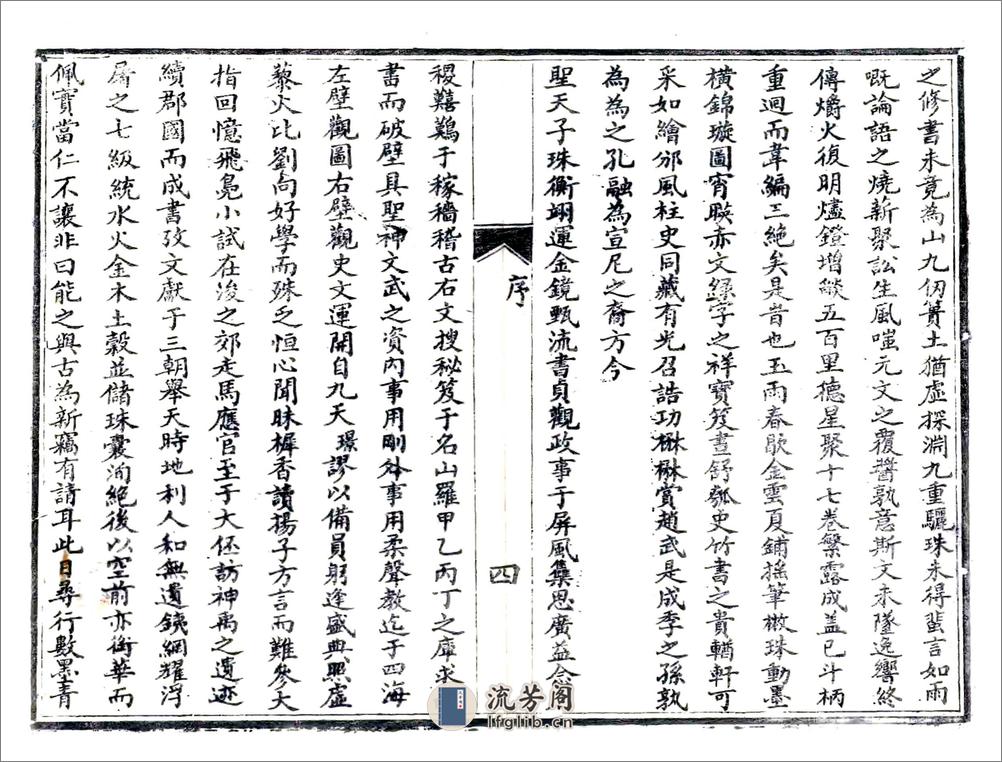 之修書未竟為山九仞簣土猶虛探淵九重驪珠未得蜚言如雨
嘅論語之燒新聚訟生風嗤元文之覆醬孰意斯文未墜逸響終
傳爝火復明燼鐙增燄五百里德星聚十七卷繁露成蓋已斗柄
重迴而韋編三絕矣是昔也玉雨春歇金雲頁鋪搖筆撒珠動墨
橫錦璇圖宵暎赤文綠字之祥寶笈晝舒瓠史竹書之貴輶軒可
采如繪邠風柱史同藏有光召誥功楙楙賞趙武是成季之孫孰
為為之孔融為宣尼之裔方今
聖天子珠衡翊運金鏡甄流書貞觀政事于屏風集思廣益念
序
四
稷囏鷄于稼穡稽古右文搜秘笈于名山羅甲乙丙丁之庫求
書而破壁具聖神文武之資內事用剛外事用柔聲教迄于四海
左壁觀圖右壁觀史文運開自九天璟謬以備員躬逢盛典照虛
藜火比劉向好學而殊乏恒心聞昧樨香讀揚子方言而難參天
指回憶飛鳧小試在浚之郊走馬應官至于大伾訪神禹之遺迹
續郡國而成書攷文獻于三朝舉天時地利人和無遺銕網耀浮
屠之七級統水火金木土穀並儲珠囊洵絕後以空前亦銜華而
佩實當仁不讓非曰能之與古為新竊有請耳此日尋行數墨青
流芳阁
lfglib.cn